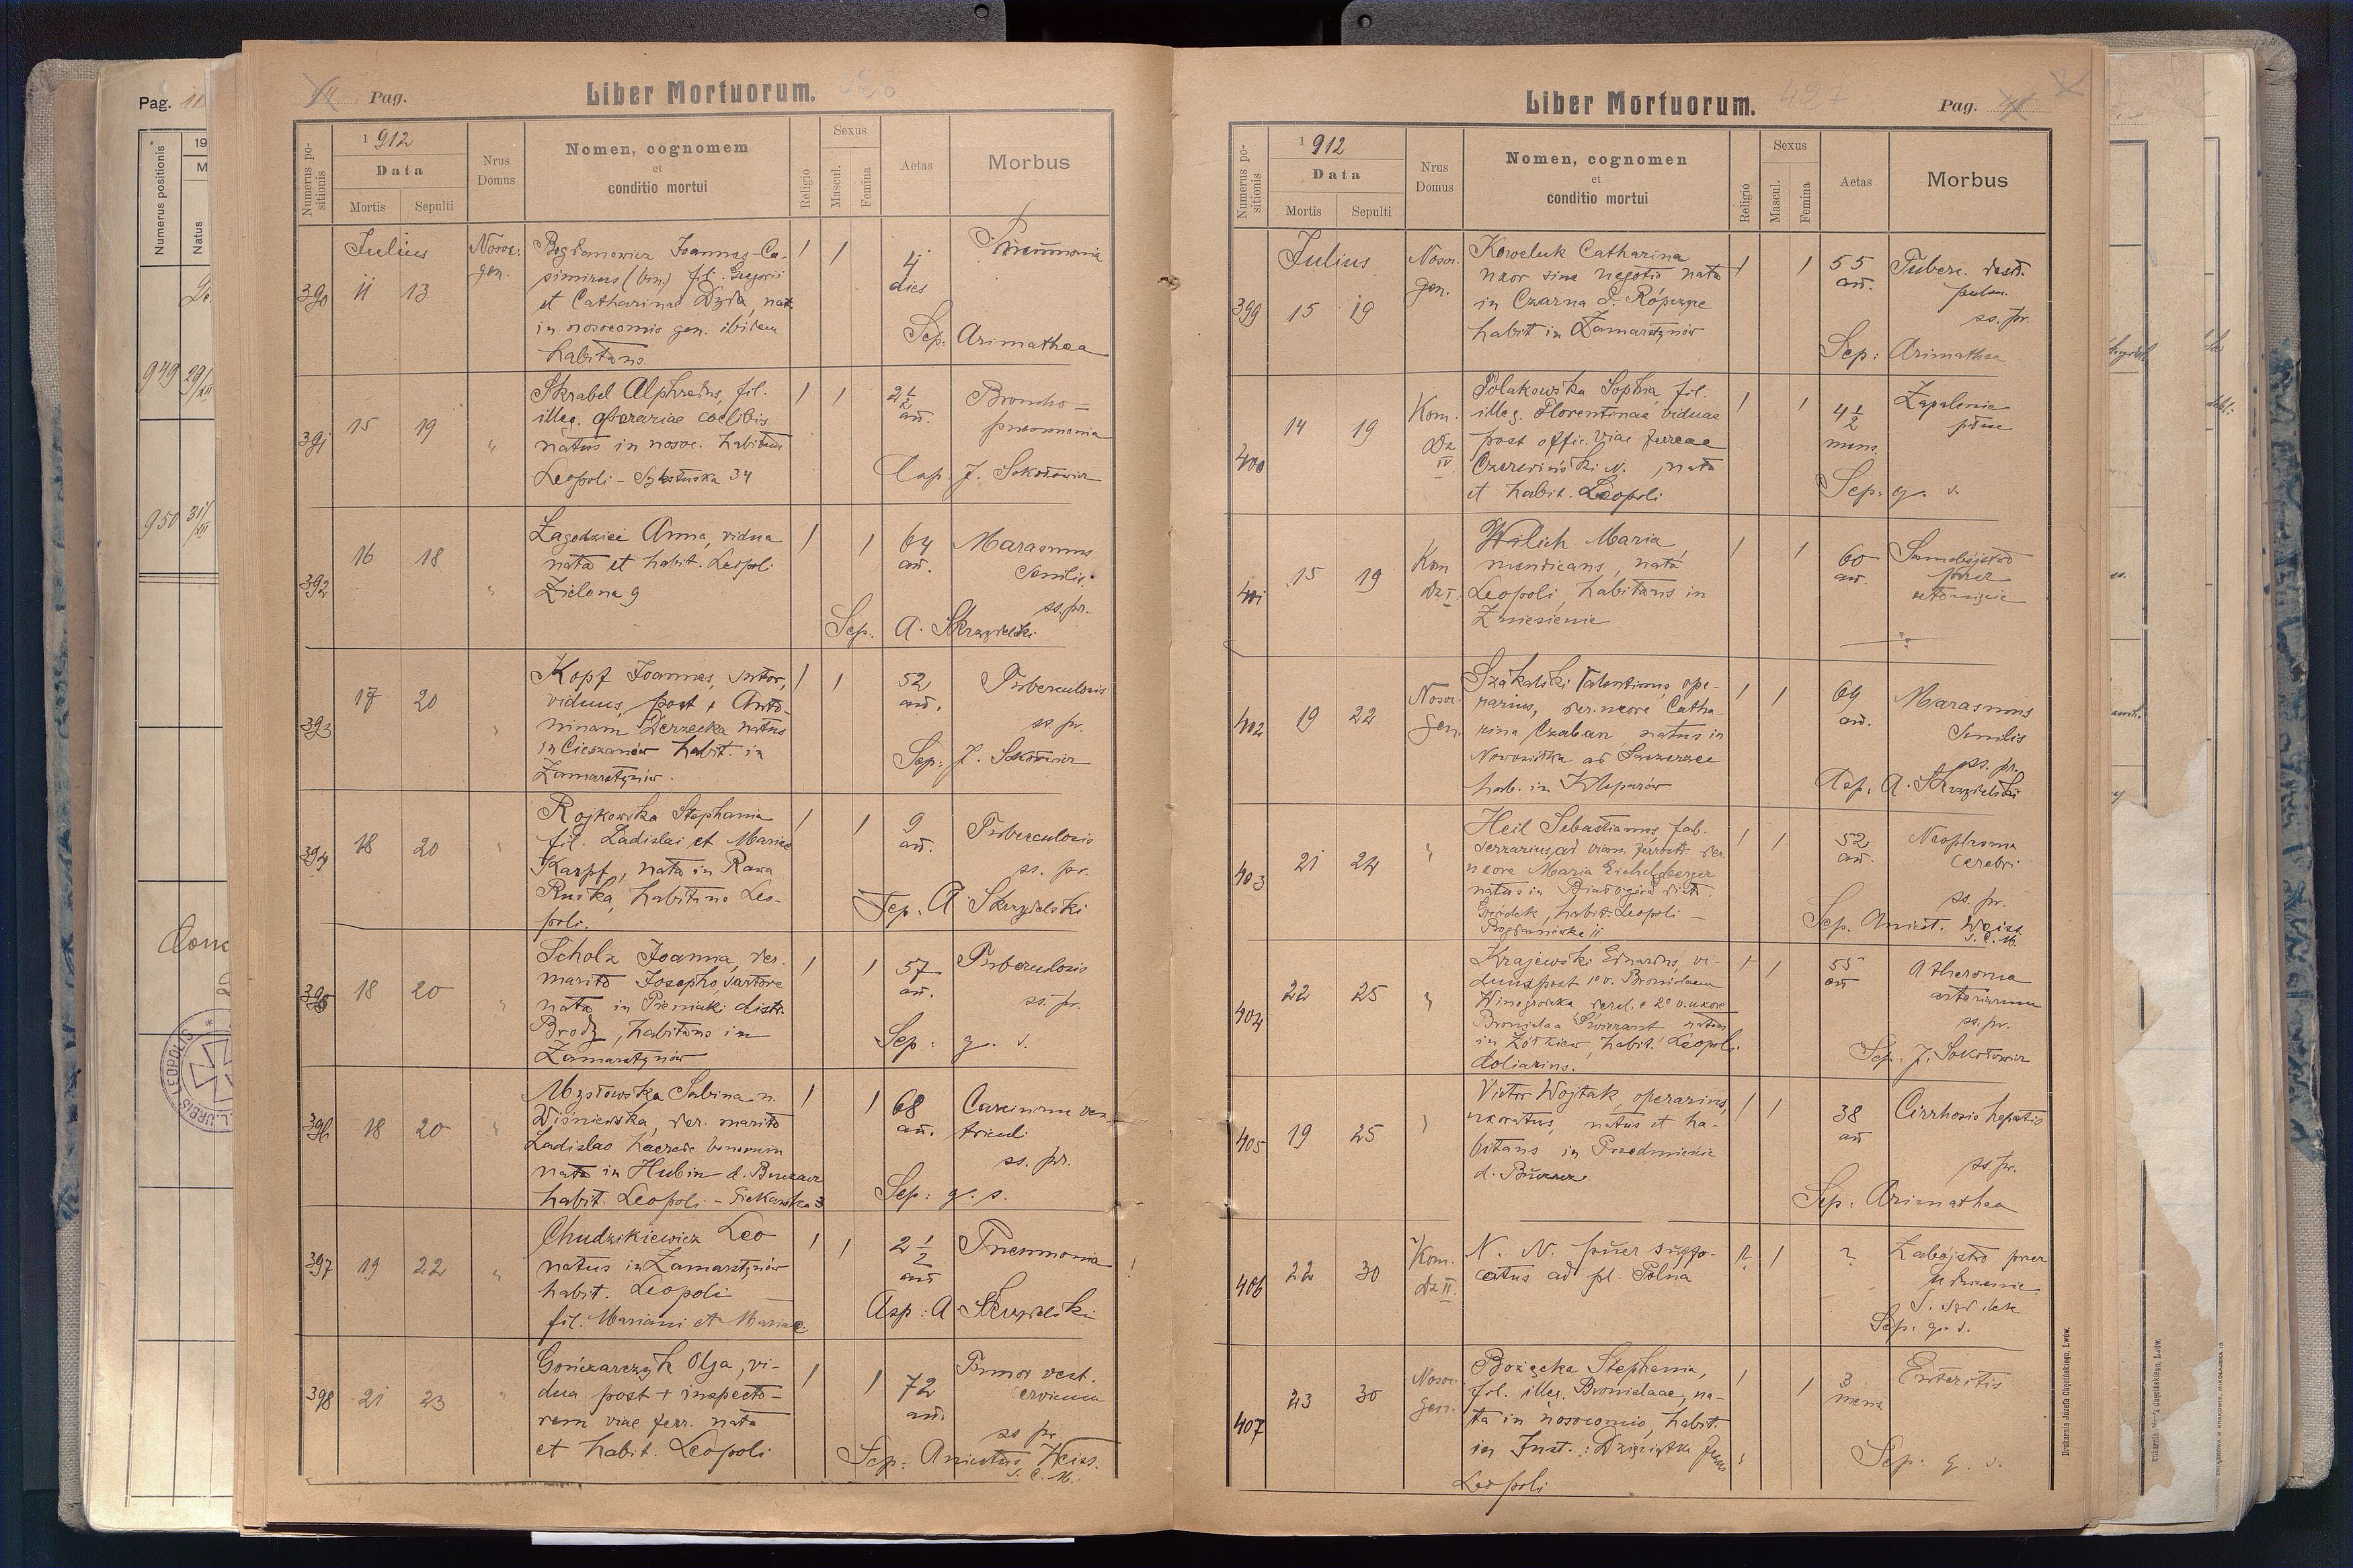 Pag. 11
Numerus positionis
19
M
Natus
949 29/XII
950 31/XII
44 Pag.
Liber Mortuorum.
Numerus positionis
1912
Data
Mortis
Sepulti
Nrus Domus
Nomen, cognomem
et
conditio mortui
Religio
Sexus
Mascul.
Femina
Aetas
Morbus
Julius
390
11 13
Nosoc. gen.
Bogdanowicz Joannes-Ca-
simirus (bin.) fil. Gregorii
et Catharinae Dzida, nat.
in nosocomio gen. ibidem
habitans.
4 dies
Pneumonia
Sep: Arimathea
391
15 19
"
Skrabel Alphredus, fil.
illeg. operariae coelibis
natus in nosoc. habitans
Leopoli - Sykstuska 34
2 1/2 an.
Broncho-
pneumonia
Cap. J. Sokołowicz
392
16 18
"
Łagodzicz Anna, vidua
nata et habit. Leopoli
Zielona 9
64 an.
Marasmus
Senilis.
ss. pr.
Sep. A. Skrzydelski
393
17 20
"
Kopf Joannes, sutor,
viduus, post + Anto-
ninam Derzecka natus
in Cieszanów habit. in
Zamarstynów.
52 an.
Tuberculosis
ss pr.
Sep: J. Sokołowicz
394
18 20
"
Rojkowska Stephania
fil. Ladislai et Mariae
Karpf, nata in Rawa
Ruska, habitans Leo-
poli.
9 an.
Tuberculosis
ss. pr.
Sep. A Skrzydelski
395
18 20
"
Scholz Joanna, der.
marito Josepho, sartore
nata in Pieniaki distr.
Brody, habitans in
Zamarstynów
57 an.
Tuberculosis
ss. pr.
Sep: q. s.
396
18 20
"
Mysłowska Sabina n.
Wiśniewska, der. marito
Ladislao haerede bonorum
nata in Hubin d. Buczacz
habit. Leopoli - Piekarska 3
68 an.
Carcinoma ven
triculi
ss. pr.
Sep: q. s.
397
19 22
"
Chudzikiewicz Leo
natus in Zamarstynów
habit. Leopoli
fil. Mariani et Mariae
2 1/2 an.
Pneumonia
Asp: A Skrzydelski
398
21 23
"
Gończarczyk Olga, vi-
dua post + inspecto-
rem viae ferr. nata
et habit. Leopoli
72 an.
Tumor vest.
ss pr.
Sep: Anicetus Weiss.
S. C. M.
Liber Mortuorum. 427
Pag. 41
Numerus positionis
1912
Data
Mortis
Sepulti
Nrus Domus
Nomen, cognomen
et
conditio mortui
Religio
Sexus
Mascul.
Femina
Aetas
Morbus
Julius
399
15 19
Nosoc. gen.
Koweluk Catharina
uxor sine negotio nata
in Czarna d. Ropczyce
habit in Zamarstynów
55 an.
Tuberc.
pulm.
ss. pr.
Sep: Arimathea
400
14 19
Kom. Dz IV
Polakowska Sophia, fil.
illeg. Florentinae viduae
post offic. viae ferreae
Czerwiński N., nata
et habit. Leopoli
4 1/2 mens.
Zapalenie
płuc
Sep: q. s.
401
15 19
Kom Dz I.
Wilich Maria
mendicans, nata
Leopoli, habitans in
Zniesienie
60 an.
Samobójstwo
przez
utonięcie
402
19 22
Nosoc. Gen.
Szakalski Valentinus, ope-
rarius, der. uxore Catha-
rina Czaban natus in
Nowosiółka ad
hab. in Kleparów
69 an.
Marasmus
Senilis
ss. pr.
Asp: A. Skrzydelski
403
21 24
"
Heil Sebastianus, fab.
serrarius, ad viam ferrea. der.
uxore Maria Eichelsberger
natus in Białogóra distr.
Gródek, habit. Leopoli -
Bogdanówka 11
52 an.
Neoplasma
cerebri
ss. pr.
Sep. Anicet. Weiss
S. C. M.
404
22 25
"
Krajewski Eduardus, vi-
duus post 1º v. Bronislaam
Winogrodzka, derel. e 2º v. uxore
Bronislaa natus
in Żółkiew, habit. Leopoli.
doliarius.
55 an
Atheroma
arteriarum
ss. pr.
Sep. J. Sokołowicz
405
19 25
"
Victor Wojtak, operarius,
uxoratus, natus et ha-
bitans in Przedmieście
d. Buczacz
38 an
Cirrhosis hepatis
ss. pr.
Sep: Arimathea
406
22 30
Kom. Dz II.
N. N. puer suffo-
catus ad pl. Polna
?
?
Zabójstwo przez
uduszenie
Sep: q. s.
407
23 30
Nosoc. gen.
Bożęcka Stephania,
fil. illeg. Bronislaae, na-
ta in nosocomio, habit.
in Inst.: Dzieciątka Jezus
Leopoli
3 mens
Enteritis
Sep. q. s.
Drukarnia Józefa Chęcińskiego, Lwów.